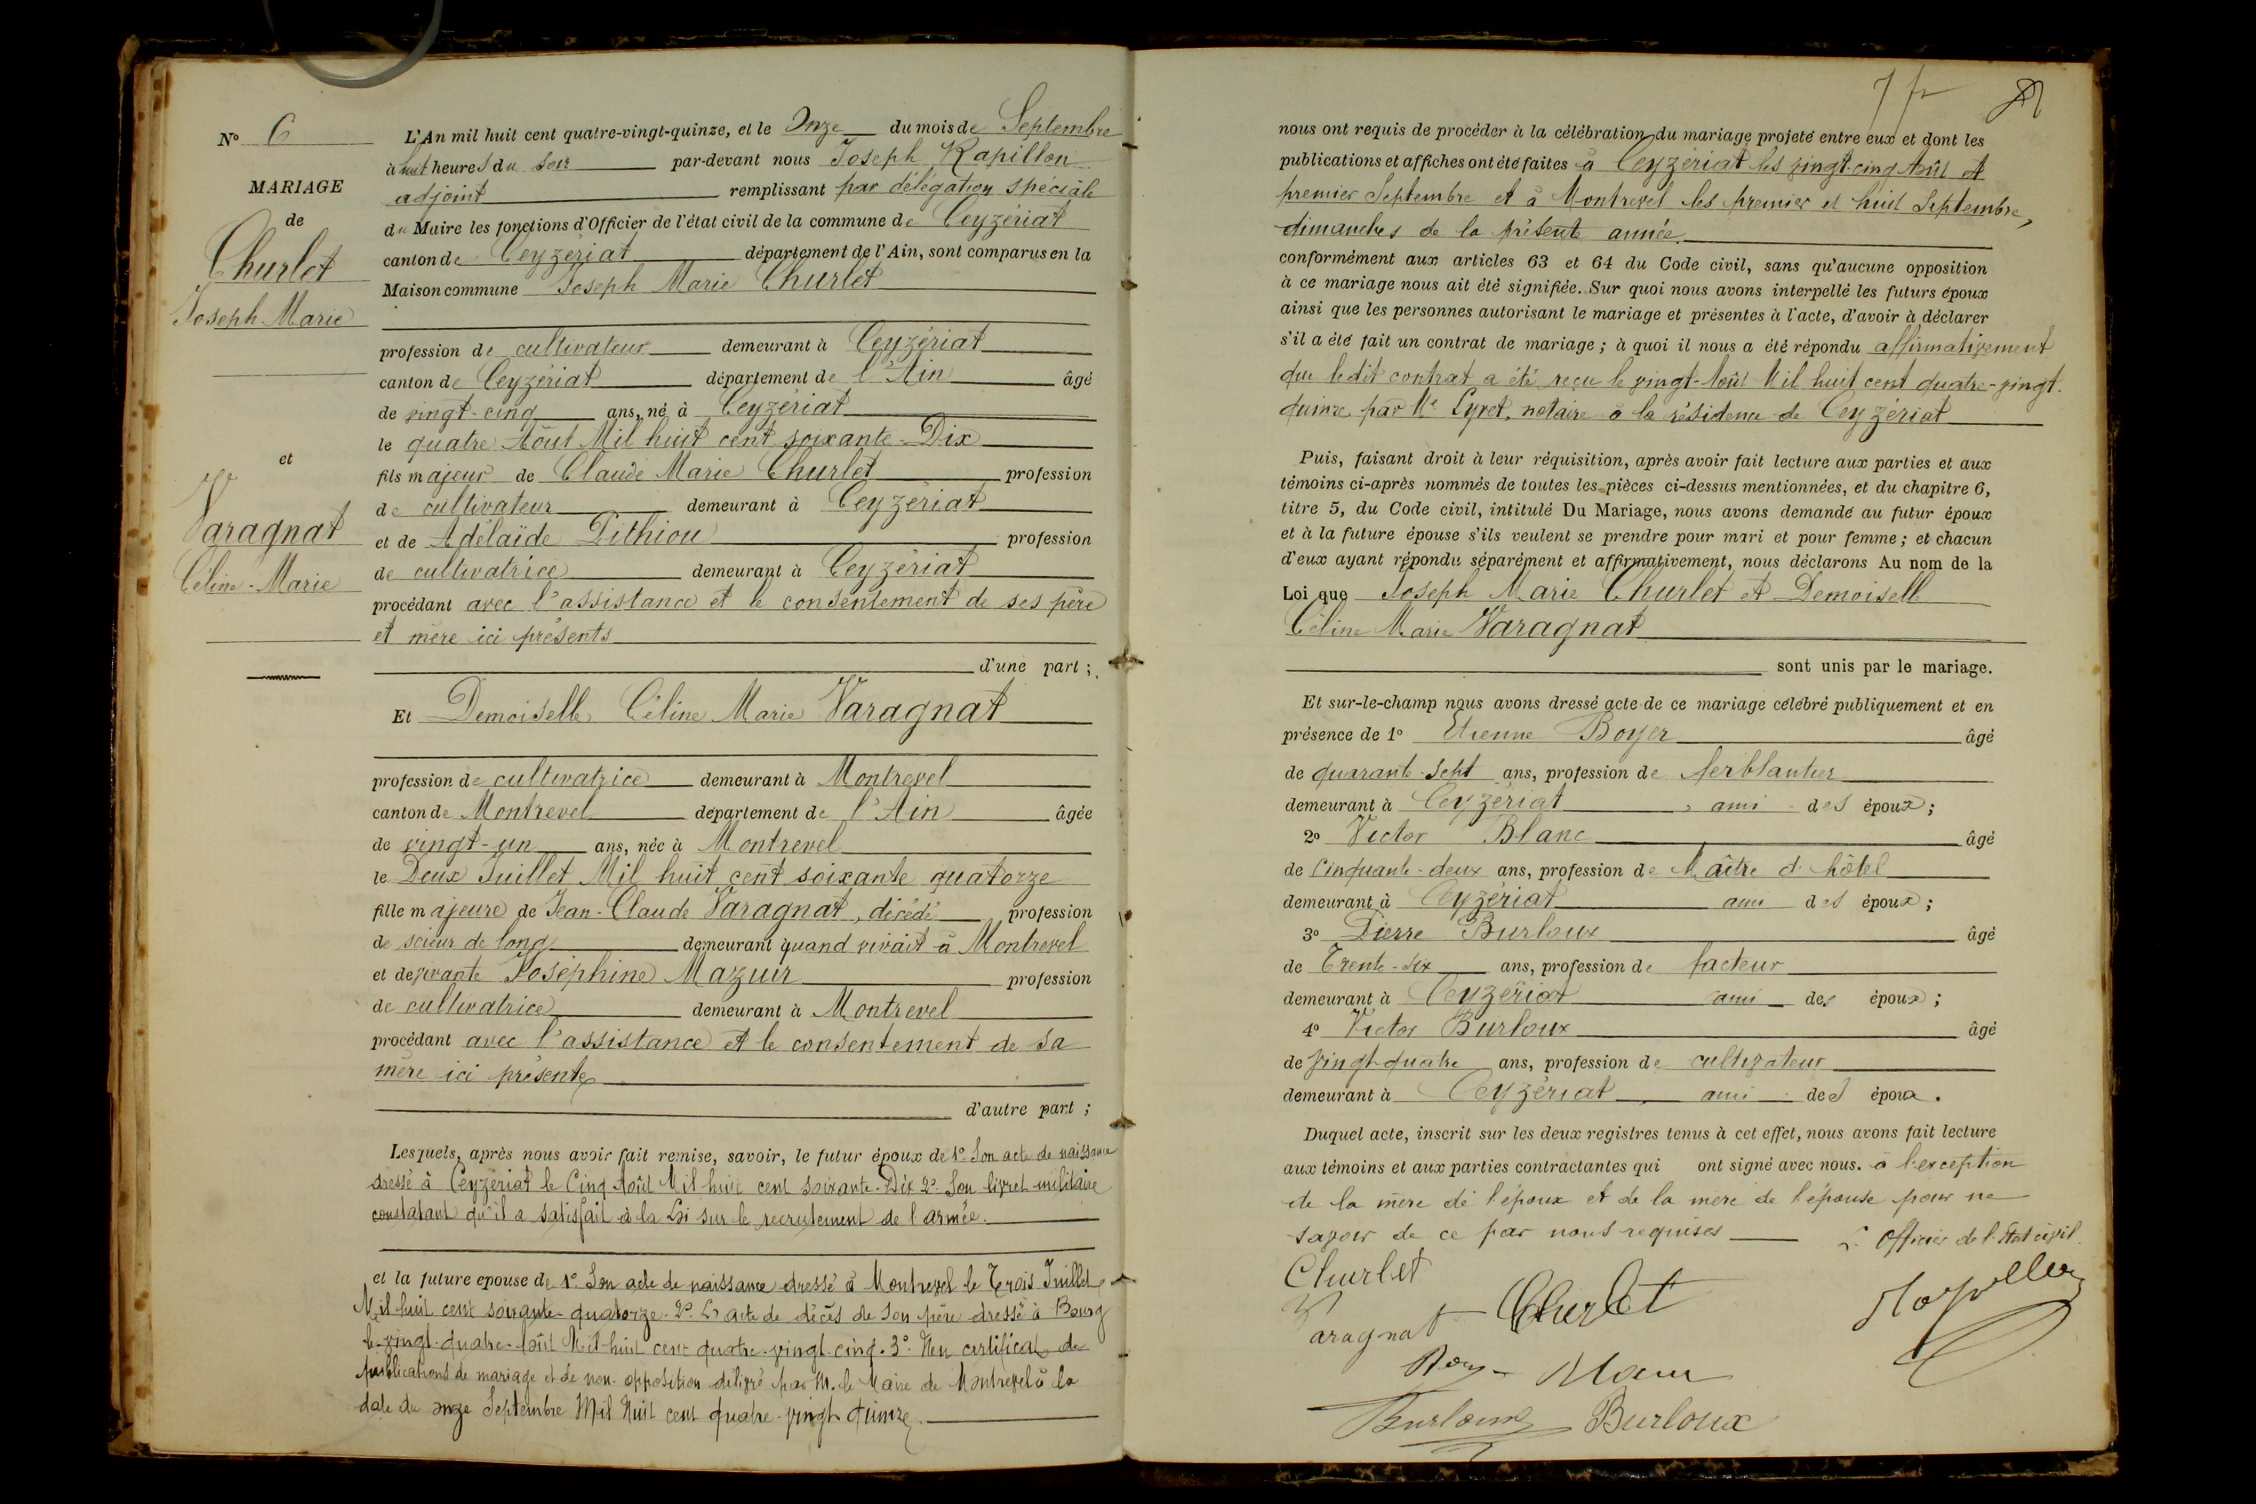 N° 6
MARIAGE
de
Churlet
Joseph Marie
et
Varagnat
Céline-Marie
L'An mil huit cent quatre-vingt-quinze, et le Onze du mois de Septembre
à huit heures du soir par-devant nous Joseph Rapillon
adjoint remplissant par délégation spéciale
du Maire les fonctions d'Officier de l'état civil de la commune de Ceyzériat
canton de Ceyzériat département de l'Ain, sont comparus en la
Maison commune Joseph Marie Churlet
profession de cultivateur demeurant à Ceyzériat
canton de Ceyzériat département de l'Ain âgé
de vingt-cinq ans, né à Ceyzériat
le quatre Août Mil huit cent soixante-Dix
fils majeur de Claude Marie Churlet profession
de cultivateur demeurant à Ceyzériat
et de Adélaïde Pithiou profession
de cultivatrice demeurant à Ceyzériat
procédant avec l'assistance et le consentement de ses père
et mère ici présents
d'une part ;
Et Demoiselle Céline Marie Varagnat
profession de cultivatrice demeurant à Montrevel
canton de Montrevel département de l'Ain âgée
de vingt-un ans, née à Montrevel
le Deux Juillet Mil huit cent soixante quatorze
fille majeure de Jean-Claude Varagnat, décédé profession
de scieur de long demeurant quand vivait à Montrevel
et de vivante Joséphine Mazuir profession
de cultivatrice demeurant à Montrevel
procédant avec l'assistance et le consentement de sa
mère ici présente
d'autre part ;
Lesquels, après nous avoir fait remise, savoir, le futur époux de 1° Son acte de naissance
dressé à Ceyzériat le Cinq Août Mil huit cent soixante-Dix 2° Son livret militaire
constatant qu'il a satisfait à la Loi sur le recrutement de l'armée.
et la future epouse de 1° Son acte de naissance dressé à Montrevel le Trois Juillet
Mil huit cent soixante-quatorze. 2° L'acte de décès de son père dressé à Bourg
le vingt-quatre-Août Mil-huit cent quatre-vingt-cinq. 3° Un certificat de
publications de mariage et de non-opposition délivré par M. le Maire de Montrevel à la
date du onze Septembre Mil Huit cent quatre-vingt quinze.
7 fr
nous ont requis de procéder à la célébration du mariage projeté entre eux et dont les
publications et affiches ont été faites à Ceyzériat les vingt-cinq Août et
premier Septembre et à Montrevel les premier et huit Septembre,
dimanches de la présente année.
conformément aux articles 63 et 64 du Code civil, sans qu'aucune opposition
à ce mariage nous ait été signifiée. Sur quoi nous avons interpellé les futurs époux
ainsi que les personnes autorisant le mariage et présentes à l'acte, d'avoir à déclarer
s'il a été fait un contrat de mariage ; à quoi il nous a été répondu affirmativement
que ledit contrat a été reçu le vingt-Août Mil huit cent quatre-vingt-
quinze par Me Lyvet, notaire à la résidence de Ceyzériat
Puis, faisant droit à leur réquisition, après avoir fait lecture aux parties et aux
témoins ci-après nommés de toutes les pièces ci-dessus mentionnées, et du chapitre 6,
titre 5, du Code civil, intitulé Du Mariage, nous avons demandé au futur époux
et à la future épouse s'ils veulent se prendre pour mari et pour femme ; et chacun
d'eux ayant répondu séparément et affirmativement, nous déclarons Au nom de la
Loi que Joseph Marie Churlet et Demoiselle
Céline Marie Varagnat
sont unis par le mariage.
Et sur-le-champ nous avons dressé acte de ce mariage célébré publiquement et en
présence de 1° Etienne Boyer âgé
de quarante-sept ans, profession de ferblantier
demeurant à Ceyzériat, ami des époux ;
2° Victor Blanc âgé
de Cinquante-deux ans, profession de Maître d'hôtel
demeurant à Ceyzériat ami des époux ;
3° Pierre Burloux âgé
de Trente-six ans, profession de facteur
demeurant à Ceyzériat ami des époux ;
4° Victor Burloux âgé
de vingt-quatre ans, profession de cultivateur
demeurant à Ceyzériat ami des époux.
Duquel acte, inscrit sur les deux registres tenus à cet effet, nous avons fait lecture
aux témoins et aux parties contractantes qui ont signé avec nous. à l'exception
de la mère de l'époux et de la mère de l'épouse pour ne
savoir de ce par nous requises
L'Officier de l'Etat civil.
Churlet
Varagnat Churlet
Rapillon
Burloux Burloux